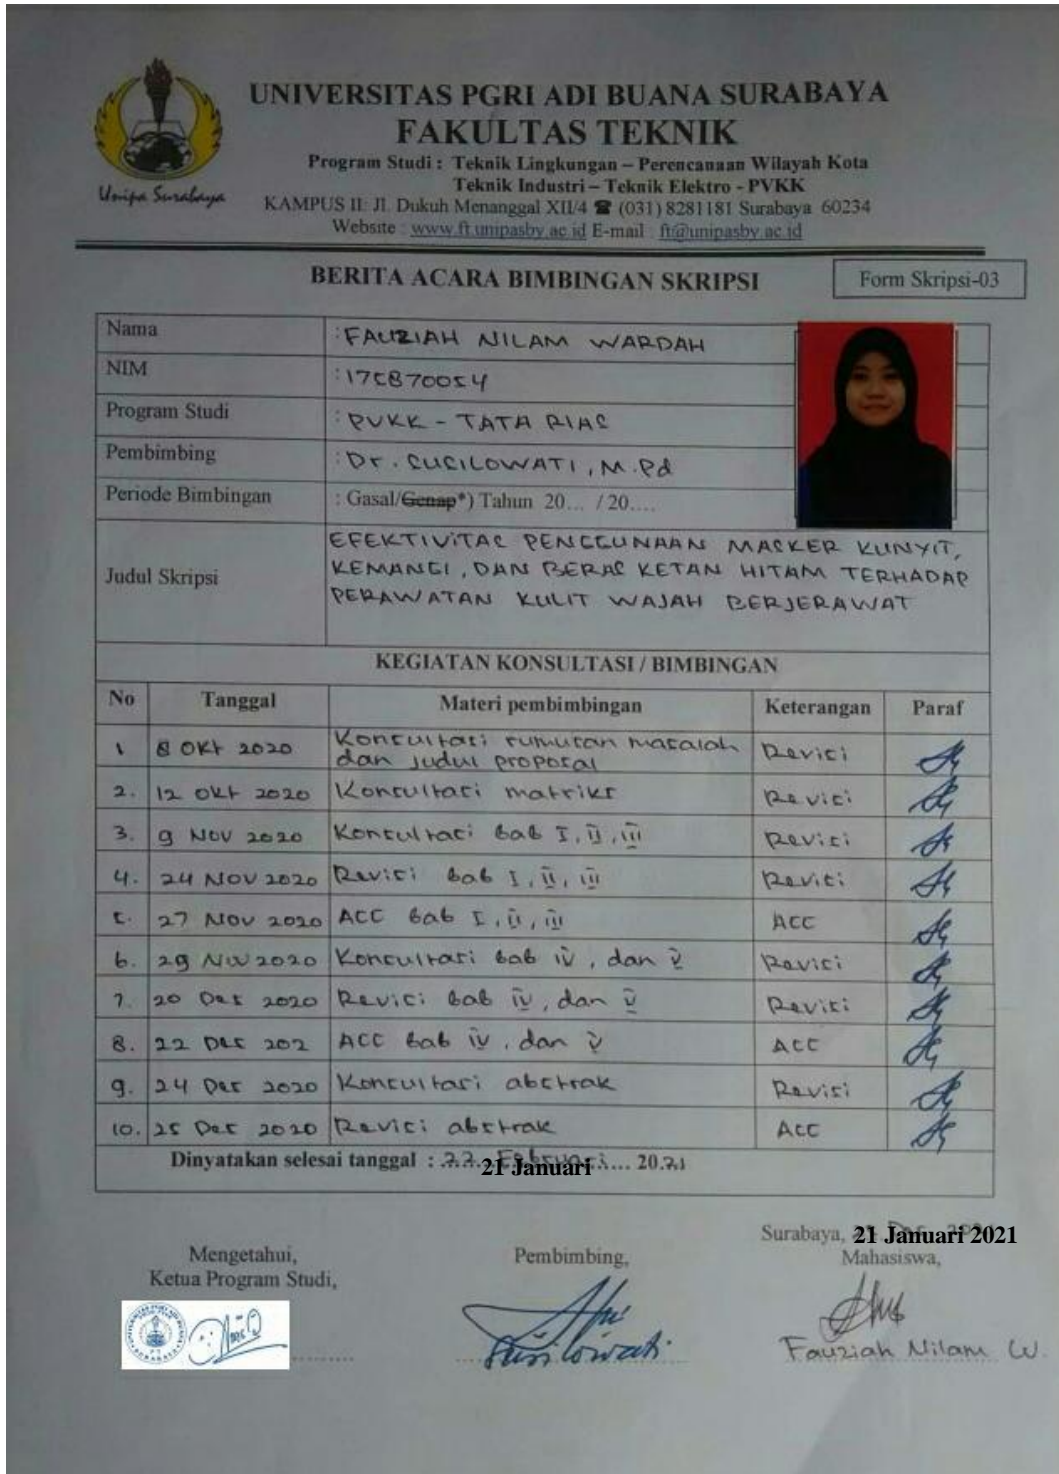 UNIVERSITAS PGRI ADI BUANA SURABAYA
FAKULTAS TEKNIK
Program Studi : Teknik Lingkungan – Perencanaan Wilayah Kota
Teknik Industri – Teknik Elektro - PVKK
KAMPUS II: Jl. Dukuh Menanggal XII/4 ☎ (031) 8281181 Surabaya 60234
Website : www.ft.unipasby.ac.id E-mail : ft@unipasby.ac.id
Unipa Surabaya
BERITA ACARA BIMBINGAN SKRIPSI
Form Skripsi-03
Nama : FAUZIAH NILAM WARDAH
NIM : 175870054
Program Studi : PVKK - TATA RIAS
Pembimbing : Dr. SUSILOWATI, M.Pd
Periode Bimbingan : Gasal/Genap*) Tahun 20... / 20....
Judul Skripsi
EFEKTIVITAS PENGGUNAAN MASKER KUNYIT,
KEMANGI, DAN BERAS KETAN HITAM TERHADAP
PERAWATAN KULIT WAJAH BERJERAWAT
KEGIATAN KONSULTASI / BIMBINGAN
No Tanggal Materi pembimbingan Keterangan Paraf
1 8 Okt 2020 Konsultasi rumusan masalah dan judul proposal Revisi
2. 12 Okt 2020 Konsultasi matriks Revisi
3. 9 Nov 2020 Konsultasi bab I, II, III Revisi
4. 24 Nov 2020 Revisi bab I, II, III Revisi
5. 27 Nov 2020 ACC bab I, II, III ACC
6. 29 Nov 2020 Konsultasi bab IV, dan V Revisi
7. 20 Des 2020 Revisi bab IV, dan V Revisi
8. 22 Des 202 ACC bab IV, dan V ACC
9. 24 Des 2020 Konsultasi abstrak Revisi
10. 25 Des 2020 Revisi abstrak ACC
Dinyatakan selesai tanggal : 21 Januari ... 20.21
Surabaya, 21 Januari 2021
Mengetahui,
Ketua Program Studi,
Pembimbing,
Susilowati
Mahasiswa,
Fauziah Nilam W.